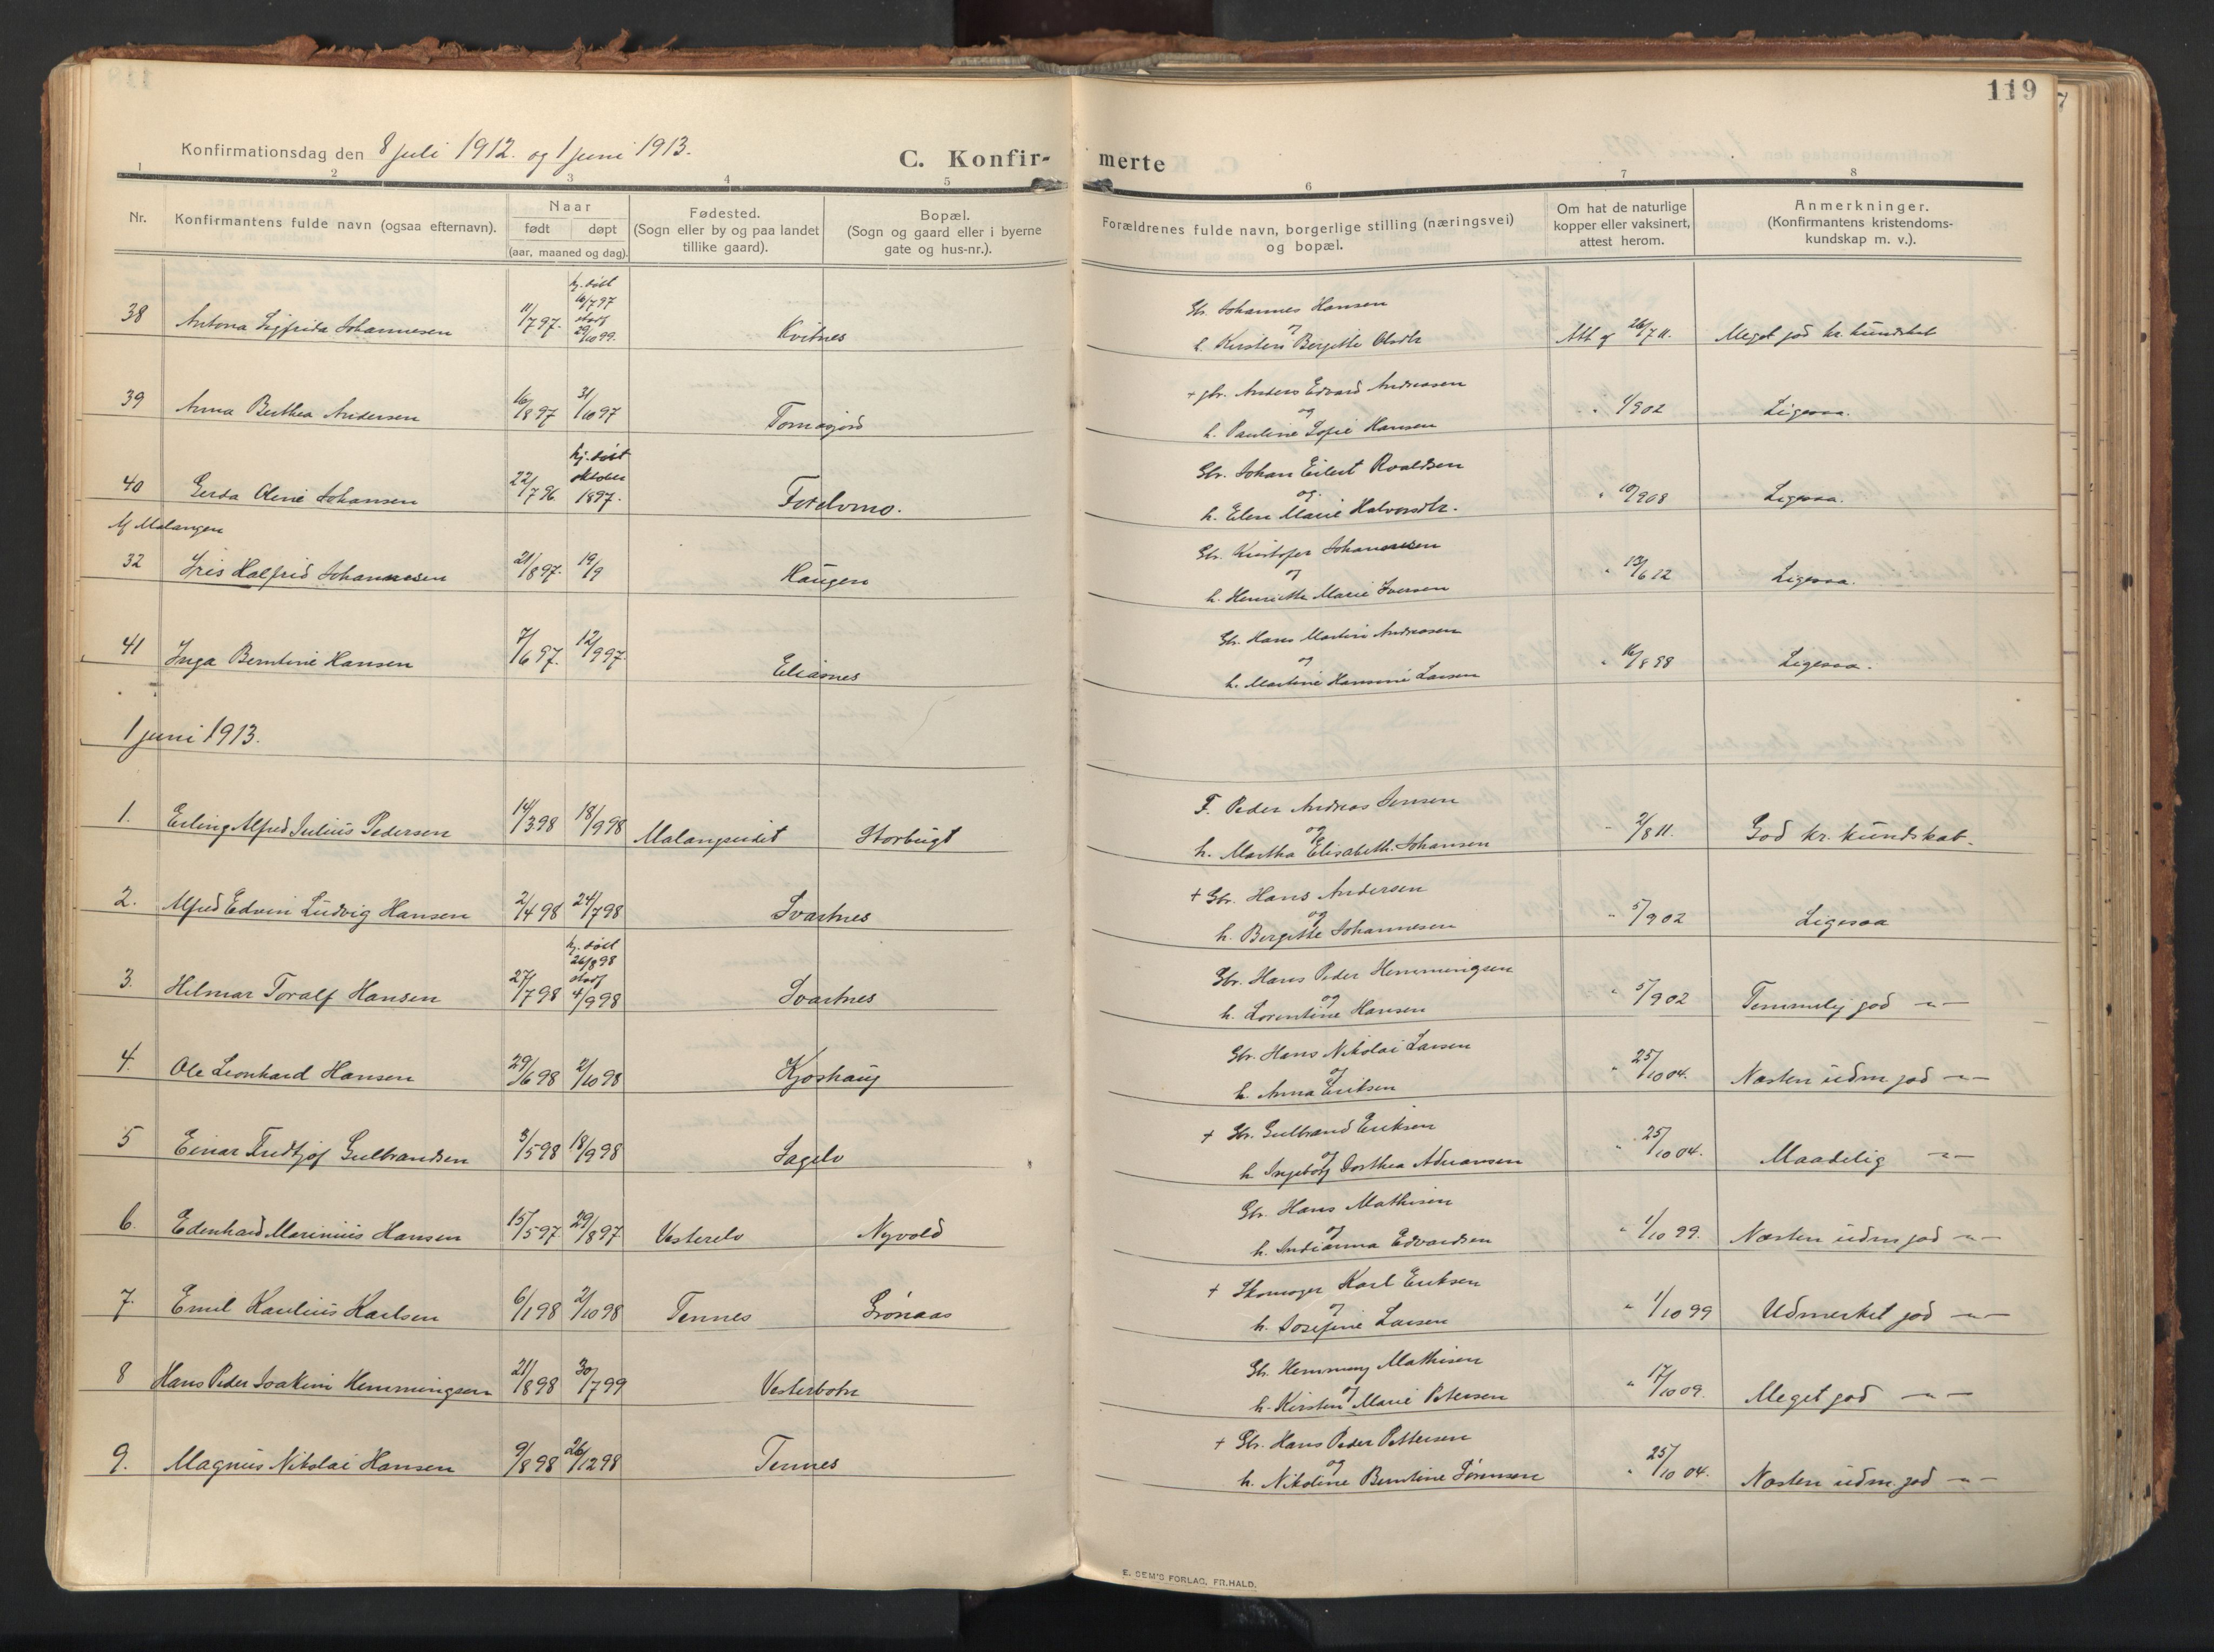 119
Konfirmationsdag den 8 juli 1912. og 1 juni 1913.
C. Konfir- merte
1 2 3 4 5 6 7 8
Nr.
Konfirmantens fulde navn (ogsaa efternavn).
Naar
født døpt
(aar, maaned og dag).
Fødested.
(Sogn eller by og paa landet
tillike gaard).
Bopæl.
(Sogn og gaard eller i byerne
gate og hus-nr.).
Forældrenes fulde navn, borgerlige stilling (næringsvei)
og bopæl.
Om hat de naturlige
kopper eller vaksinert,
attest herom.
Anmerkninger.
(Konfirmantens kristendoms-
kundskap m. v.).
hj. døbt
16/7 97
stadf
29/10 99.
Gbr. Johannes Hansen
38 Antona Sigfrida Johannesen 11/7 97. Kvitnes
og
h. Kirstin Bergitte Olsdtr Att af 26/7 11. Meget god kr. kundskab
+ gbr. Anders Edvard Andreasen
39 Anna Berthea Andersen 16/8 97 31/10 97 Tomasjord
og
h. Pauline Sofie Hansen " 1/9 02 Ligesaa.
hj. døbt
oktober
1897.
Gbr. Johan Eilert Roaldsen
40 Gerda Oline Johansen 22/7 96.
og
h. Elen Marie Halvorsdtr. " 10/9 08 Ligesaa.
Af Malangen
Gbr. Kristofer Johannesen
32 Iris Halfrid Johannesen 21/8 97. 19/9 Haugen
og
h. Henriette Marie Iversen " 13/6 12 Ligesaa.
Gbr. Hans Martin Andreasen
41 Inga Berntine Hansen 7/6 97. 12/9 97. Eliasnes
og
h. Martine Hansine Larsen " 16/8 98 Ligesaa.
1 juni 1913.
F. Peder Andreas Jensen
1. Erling Alfred Julius Pedersen 14/3 98 18/9 98 Malangseidet Storbugt
og
h. Martha Elisabeth Johansen " 2/8 11. God kr. kundskab.
+ Gbr. Hans Andersen
2. Alfred Edvin Ludvig Hansen 2/4 98 24/7 98 Svartnes
og
h. Bergitte Johannesen " 5/9 02 Ligesaa
hj. døbt
26/8 98
stadf
4/9 98
Gbr. Hans Peder Hemmingsen
3. Hilmar Toralf Hansen 27/7 98 Svartnes
og
h. Lorentine Hansen " 5/9 02 Temmelig god -"-
Gbr. Hans Nikolai Larsen
4. Ole Leonhard Hansen 29/6 98 2/10 98 Kjoshaug
og
h. Anna Eriksen " 25/10 04. Næsten udm god -"-
+ Gbr. Gulbrand Eriksen
5 Einar Fridtjof Gulbrandsen 3/5 98 18/9 98 Sagelv
og
h Ingeborg Dorthea Adriansen " 25/10 04. Maadelig -"-
Gbr. Hans Mathisen
6. Edenhard Marinius Hansen 15/5 97. 29/8 97 Vesterelv Nyvold
og
h. Indianna Edvardsen " 1/10 99. Næsten udm god -"-
+ Skomager Karl Eriksen
7. Emil Kaulius Karlsen 6/1 98 2/10 98 Tennes Grønaas
og
h. Josefine Larsen " 1/10 99 Udmerket god -"-
Gbr. Hemming Mathisen
8 Hans Peder Joakim Hemmingsen 21/8 98 30/7 99 Vesterbotn
og
h. Kirsten Marie Petersen " 17/10 09. Meget god -"-
+ Gbr. Hans Peder Pettersen
9. Magnus Nikolai Hansen 9/8 98 26/12 98 Tennes
og
h. Nikoline Berntine Sørensen " 25/10 04. Næsten udm. god -"-
E. SEM'S FORLAG, FR.HALD.